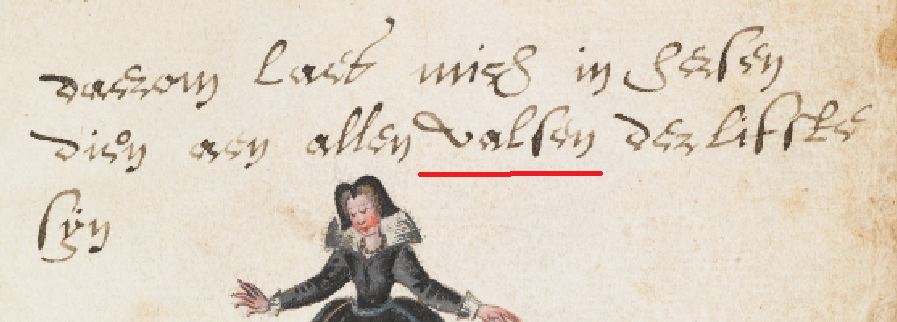 daerom laet mich in hersen
dien aen allen valsen der lifste
syn